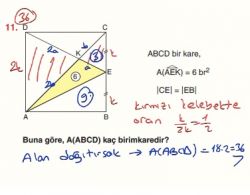 36
11.
D
C
b
K
k
2k
2a
a
3
E
6
9
k
2b
A
B
ABCD bir kare,
A(AEK) = 6 br²
|CE| = |EB|
kırmızı kelebekte
oran k/2k = 1/2
Buna göre, A(ABCD) kaç birimkaredir?
Alan dağıtırsak → A(ABCD) = 18.2 = 36